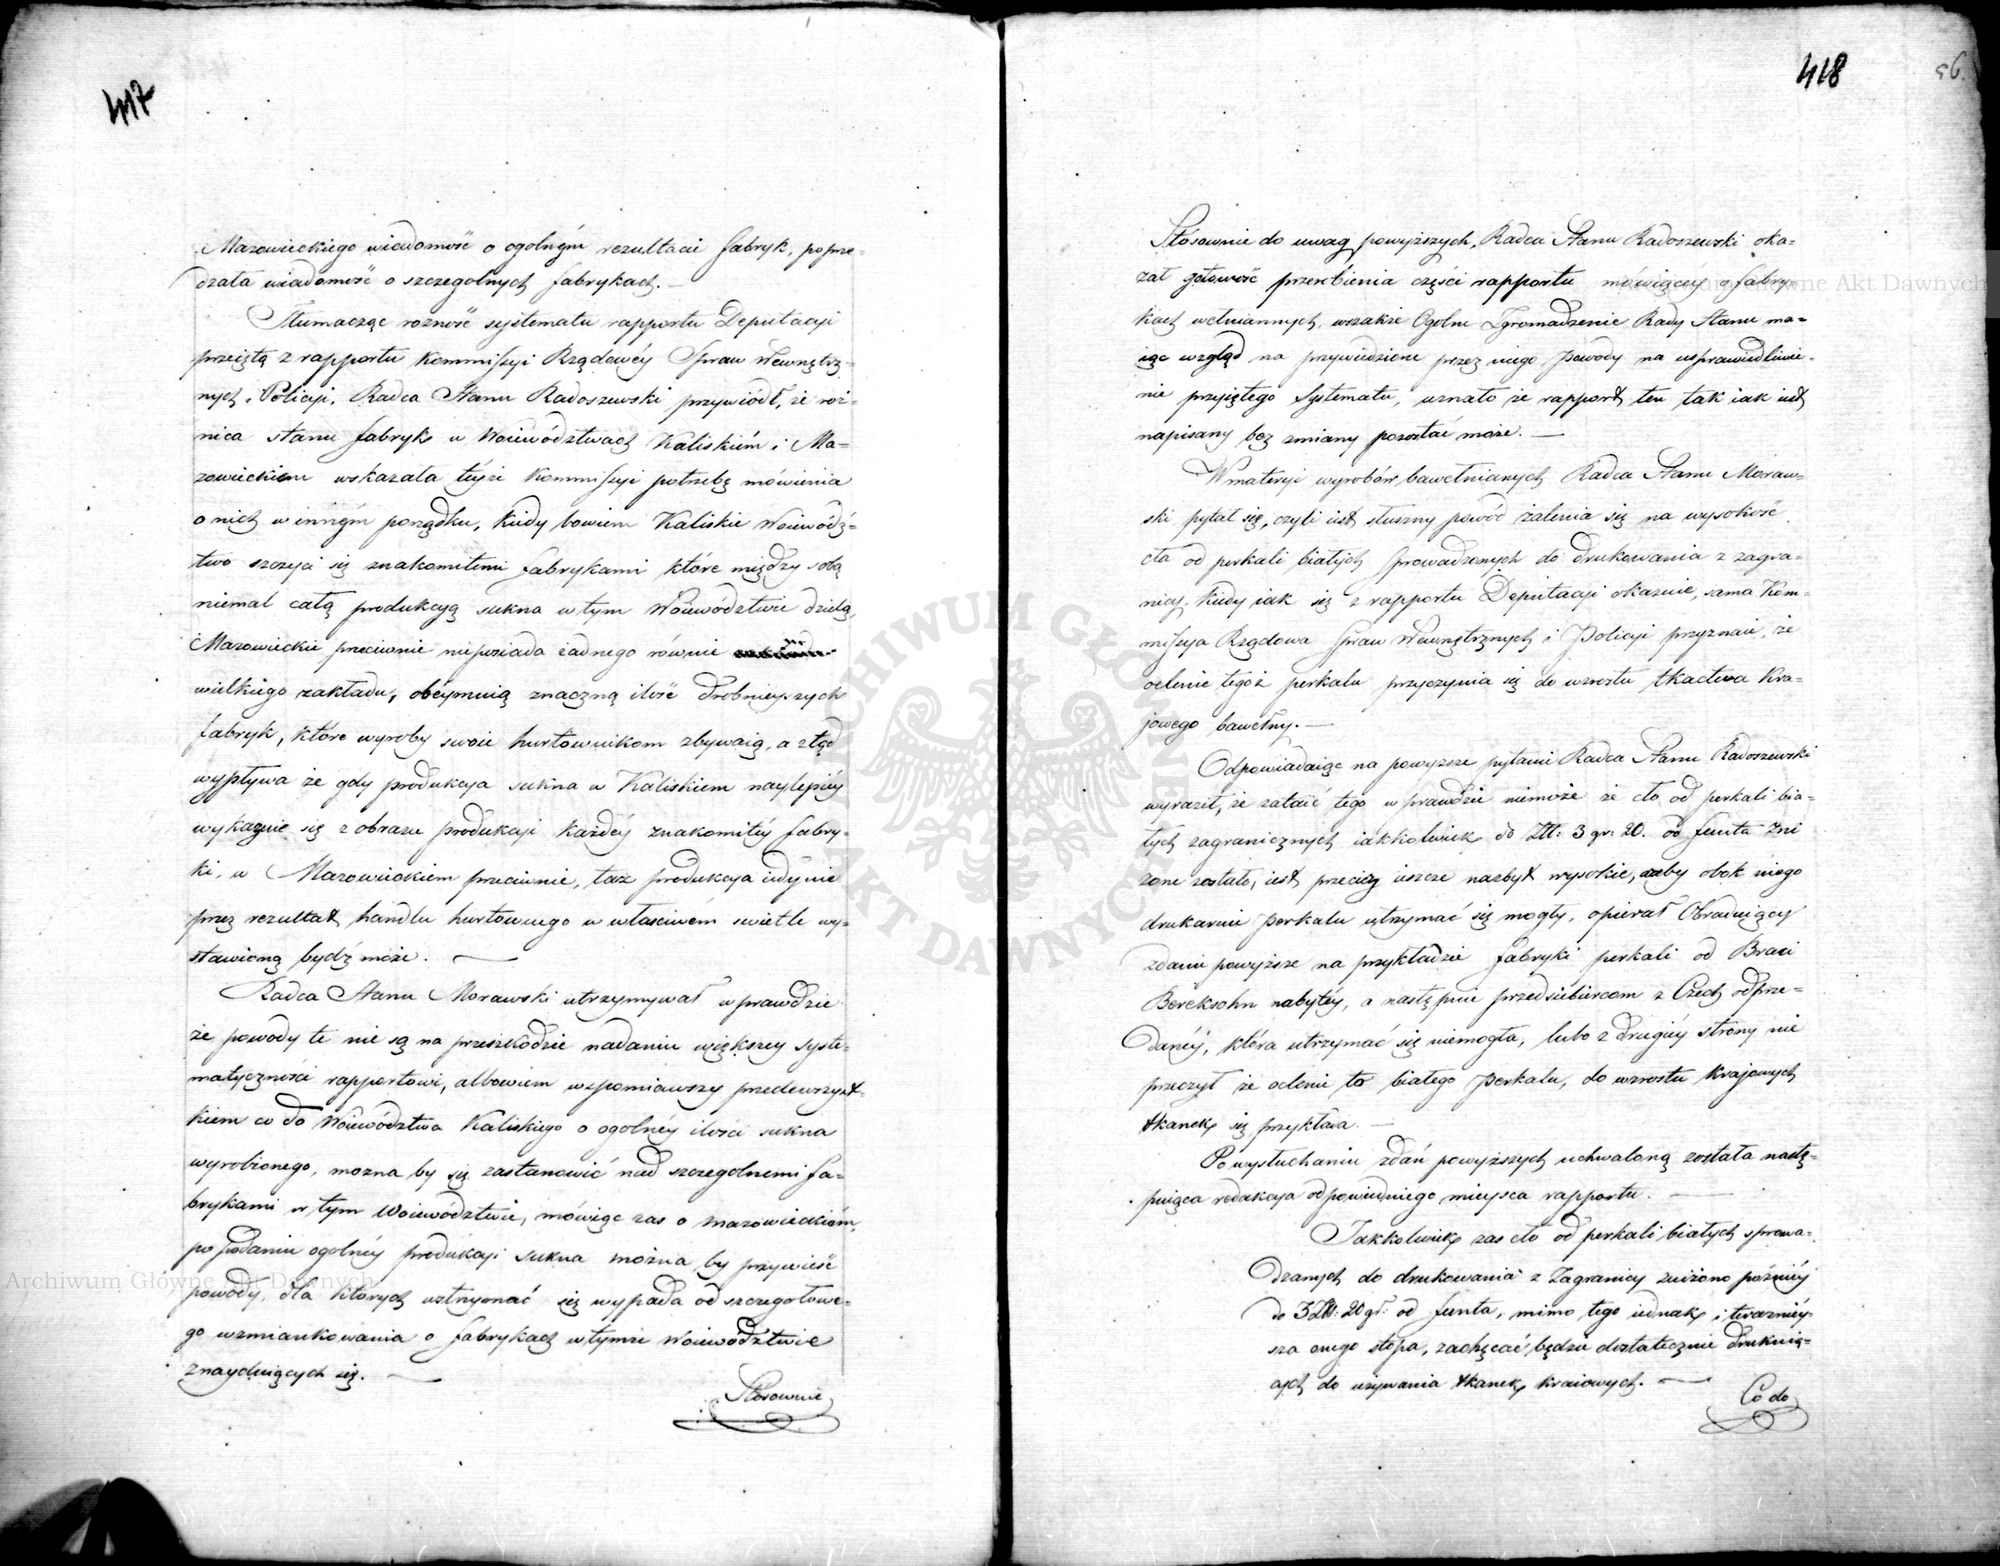 417
Mazowieckiego wiadomość o ogolnym rezultacie fabryk, poprze-
dzała wiadomość o szczegolnych fabrykach. —
Tłumacząc rozność systematu rapportu Deputacji
przeiętą z rapportu Kommissyi Rządowéy Spraw Wewnętrz-
nych i Policyi, Radca Stanu Radoszewski przywiódł, że róż-
nica stanu fabryk w Woiewództwach Kaliskiém i Ma-
zowieckiem wskazała teyże Kommissyi potrzebę mówienia
o nich w innym porządku, kiedy bowiem Kaliskie Woiewódz-
two szczyci się znakomitemi fabrykami które między sobą
niemal całą produkcyą sukna w tym Woiewództwie dzielą,
Mazowieckie przeciwnie nieposiada żadnego równie
wielkiego zakładu, obeymuią znaczną ilość drobnieyszych
fabryk, które wyroby swoie hurtownikom zbywaią, a ztąd
wypływa że gdy produkcya sukna w Kaliskiem naylepiéy
wykazuie się z obrazu produkcyi każdéy znakomitéy fabry-
ki, w Mazowieckiem przeciwnie, taż produkcya iedynie
przez rezultat handlu hurtowego w właściwém świetle wy-
stawioną bydź może. —
Radca Stanu Morawski utrzymywał w prawdzie
że powody te nie są na przeszkodzie nadaniu większey syste-
matyczności rapportowi, albowiem wspomniawszy przedewszyst-
kiem co do Woiewództwa Kaliskiego o ogolnéy ilości sukna
wyrobionego, mozna by się zastanowić nad szczegolnemi fa-
brykami w tym Woiewództwie, mówiąc zas o Mazowieckiém,
po podaniu ogolnéy produkcyi sukna można by przywieść
powody, dla których wstrzymać się wypada od szczegołowe-
go wzmiankowania o fabrykach w tymże Woiewództwie
znayduiących się. —
Stosownie
418
56.
Stósownie do uwag powyższych, Radca Stanu Radoszewski oka-
zał gotowość przerobienia części rapportu mówiącéy o fabry-
kach wełniannych, wszakże Ogolne Zgromadzenie Rady Stanu ma-
iąc wzgląd na przywiedzione przez niego powody na usprawiedliwie-
nie przyiętego Systematu, uznało że rapport ten tak iak iest
napisany bez zmiany pozostać może. —
W materyi wyrobów bawełnianych Radca Stanu Moraw-
ski pytał się, czyli iest słuszny powód żalenia się na wysokość
cła od perkali białych sprowadzonych do drukowania z zagra-
nicy, kiedy iak się z rapportu Deputacji okazuie, sama Kom-
missya Rządowa Spraw Wewnętrznych i Policyi przyznaie, że
oclenie tegoż perkalu przyczynia się do wzrostu tkactwa Kra-
jowego bawełny. —
Odpowiadaiąc na powyższe pytanie Radca Stanu Radoszewski
wyraził, że zataić tego w prawdzie niemoże że cło od perkali bia-
łych zagranicznych iakkolwiek do Złł: 3 gr: 20. od funta zni
żone zostało, iest przeciez ieszcze nazbyt wysokie, żeby obok niego
drukarnie perkalu utrzymać się mogły, opierał Obraduiący
zdanie powyższe na przykładzie fabryki perkali od Braci
Bereksohn nabytéy, a następnie przedsiebiorcom z Czech odprze-
danéy, która utrzymać się niemogła, lubo z drugiéy strony nie
przeczył że oclenie to białego perkalu, do wzrostu krajowych
tkanek się przykłada. —
Po wysłuchaniu zdań powyższych uchwaloną została nastę-
puiąca redakcya odpowiedniego mieysca rapportu. —
Jakkolwiek zas cło od perkali białych sprowa-
dzanych do drukowania z Zagranicy zniżono późniéy
do 3 Złł: 20 gr: od funta, mimo tego iednak i teraznièy-
sza onego stopa, zachęcać będzie dostatecznie drukuią-
cych do używania tkanek kraiowych. —
Co do
Archiwum Główne Akt Dawnych
Archiwum Główne Akt Dawnych
ARCHIWUM GŁÓWNE AKT DAWNYCH